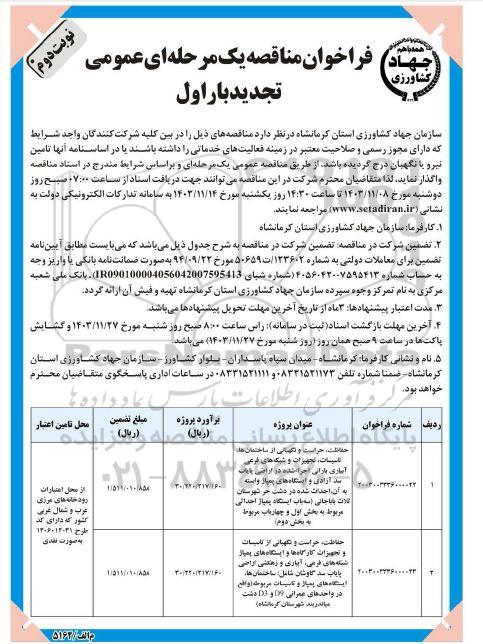 نوبت دوم
همدیاهم
جهاد
کشاورزی
فراخوان مناقصه یک مرحله‌ای عمومی
تجدید بار اول
سازمان جهاد کشاورزی استان کرمانشاه درنظر دارد مناقصه‌های ذیل را در بین کلیه شرکت‌کنندگان واجد شرایط
که دارای مجوز رسمی و صلاحیت معتبر در زمینه فعالیت‌های خدماتی را داشته باشند یا در اساسنامه آنها تامین
نیرو یا نگهبان درج گردیده باشد. از طریق مناقصه عمومی یک‌مرحله‌ای و براساس شرایط مندرج در اسناد مناقصه
واگذار نماید. لذا متقاضیان محترم شرکت در این مناقصه می‌توانند جهت دریافت اسناد از ساعت ۰۷:۰۰ صبح روز
دوشنبه مورخ ۱۴۰۳/۱۱/۰۸ تا ساعت ۱۴:۳۰ روز یکشنبه مورخ ۱۴۰۳/۱۱/۱۴ به سامانه تدارکات الکترونیکی دولت به
نشانی (www.setadiran.ir) مراجعه نمایند.
۱. کارفرما: سازمان جهاد کشاورزی استان کرمانشاه
۲. تضمین شرکت در مناقصه: تضمین شرکت در مناقصه به شرح جدول ذیل می‌باشد که می‌بایست مطابق آیین‌نامه
تضمین برای معاملات دولتی به شماره ۱۲۳۴۰۲/ت۵۰۶۵۹ مورخ ۹۴/۰۹/۲۲ به‌صورت ضمانت‌نامه بانکی یا واریز وجه
به حساب شماره ۴۰۵۶۰۴۲۰۰۷۵۹۵۴۱۳ (شماره شبای IR090100004056042007595413)، بانک ملی شعبه
مرکزی به نام تمرکز وجوه سپرده سازمان جهاد کشاورزی استان کرمانشاه تهیه و فیش آن ارائه گردد.
۳. مدت اعتبار پیشنهادها: ۳ماه از تاریخ آخرین مهلت تحویل پیشنهادها می‌باشد.
۴. آخرین مهلت بازگشت اسناد(ثبت در سامانه): راس ساعت ۸:۰۰ صبح روز شنبه مورخ ۱۴۰۳/۱۱/۲۷ و گشایش
پاکت‌ها در ساعت ۹ صبح همان روز (روز شنبه مورخ ۱۴۰۳/۱۱/۲۷) می‌باشد.
۵. نام و نشانی کارفرما: کرمانشاه- میدان سپاه پاسداران- بلوار کشاورز- سازمان جهاد کشاورزی استان
کرمانشاه- ضمنا شماره تلفن ۰۸۳۳۱۵۲۱۱۷۳ و ۰۸۳۳۱۵۲۱۱۱۱ در ساعات اداری پاسخگوی متقاضیان محترم
خواهد بود.
ردیف شماره فراخوان عنوان پروژه برآورد پروژه (ریال) مبلغ تضمین (ریال) محل تامین اعتبار
۱ ۲۰۰۳۰۰۳۳۳۶۰۰۰۰۲۲
حفاظت، حراست و نگهبانی از ساختمان‌ها،
تاسیسات، تجهیزات و شبکه‌های فرعی
آبیاری بارانی اجرا شده در اراضی پایاب
سد آزادی و ایستگاه‌های پمپاژ وابسته
به آن، احداث شده در دشت حر شهرستان
ثلاث باباجانی (سه‌باب ایستگاه پمپاژ احداثی
مربوط به بخش اول و چهارباب مربوط
به بخش دوم)
۳۰/۲۲۰/۲۱۷/۱۶۰ ۱/۵۱۱/۰۱۰/۸۵۸
از محل اعتبارات
رودخانه‌های مرزی
غرب و شمال غربی
کشور که دارای کد
طرح ۱۳۰۶۰۱۲۰۳۱
به‌صورت نقدی
۲ ۲۰۰۳۰۰۳۳۳۶۰۰۰۰۲۳
حفاظت، حراست و نگهبانی از تاسیسات
و تجهیزات کارگاه‌ها و ایستگاه‌های پمپاژ
شبکه‌های فرعی، آبیاری و زهکشی اراضی
پایاب سد گاوشان شامل: ساختمان‌ها،
ایستگاه‌های پمپاژ و تاسیسات مربوطه (واقع
در واحدهای عمرانی D9 و D3 دشت
میاندربند شهرستان کرمانشاه)
۳۰/۲۲۰/۲۱۷/۱۶۰ ۱/۵۱۱/۰۱۰/۸۵۸
م‌الف/۵۱۶۳